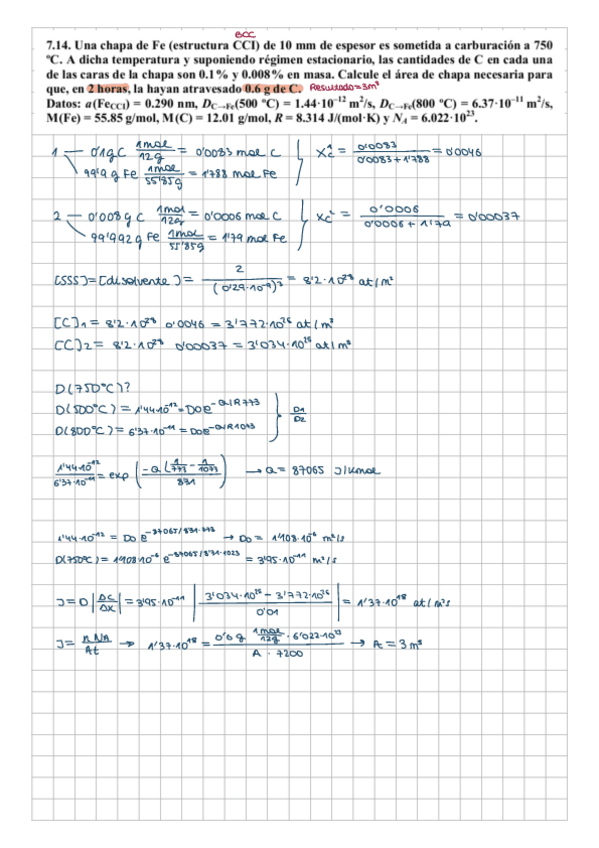 BCC
7.14. Una chapa de Fe (estructura CCI) de 10 mm de espesor es sometida a carburación a 750
ºC. A dicha temperatura y suponiendo régimen estacionario, las cantidades de C en cada una
de las caras de la chapa son 0.1% y 0.008% en masa. Calcule el área de chapa necesaria para
que, en 2 horas, la hayan atravesado 0.6 g de C. Resultado=3m²
Datos: a(Fe_CCI) = 0.290 nm, D_C→Fe(500 ºC) = 1.44·10⁻¹² m²/s, D_C→Fe(800 ºC) = 6.37·10⁻¹¹ m²/s,
M(Fe) = 55.85 g/mol, M(C) = 12.01 g/mol, R = 8.314 J/(mol·K) y N_A = 6.022·10²³.
1 — 0'1g C 1mol/12g = 0'0083 mol C
99'9 g Fe 1mol/55'85g = 1'788 mol Fe
X_C¹ = 0'0083/(0'0083+1'788) = 0'0046
2 — 0'008g C 1mol/12g = 0'0006 mol C
99'992 g Fe 1mol/55'85g = 1'79 mol Fe
X_C² = 0'0006/(0'0006 + 1'79) = 0'00037
[SSS]=[disolvente] = 2/(0'29·10⁻⁹)³ = 8'2·10²⁸ at/m³
[C]₁ = 8'2·10²⁸ 0'0046 = 3'772·10²⁶ at/m³
[C]₂ = 8'2·10²⁸ 0'00037 = 3'034·10²⁵ at/m³
D(750ºC)?
D(500ºC) = 1'44·10⁻¹² = D₀e^(-Q/R773)
D(800ºC) = 6'37·10⁻¹¹ = D₀e^(-Q/R1073)
D1/D2
1'44·10⁻¹²/6'37·10⁻¹¹ = exp(-Q(1/773 - 1/1073)/8'31) → Q = 87065 J/Kmol
1'44·10⁻¹² = D₀ e^(-87065/8'31·773) → D₀ = 1'108·10⁻⁶ m²/s
D(750ºC) = 1'108·10⁻⁶ e^(-87065/8'31·1023) = 3'95·10⁻¹¹ m²/s
J = D |ΔC/Δx| = 3'95·10⁻¹¹ |(3'034·10²⁵ - 3'772·10²⁶)/0'01| = 1'37·10¹⁸ at/m²s
J = n N_A/At → 1'37·10¹⁸ = (0'6 g 1mol/12g · 6'022·10²³)/(A · 7200) → A = 3m²